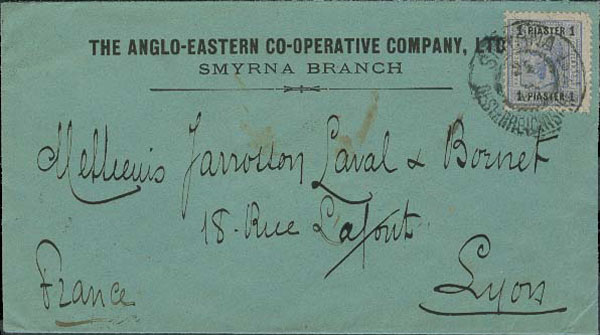 THE ANGLO-EASTERN CO-OPERATIVE COMPANY, LTD
SMYRNA BRANCH
1 PIASTER 1
1 PIASTER 1
Jarrosson Laval & Bornet
18 - Rue Lafont.
Lyon
France